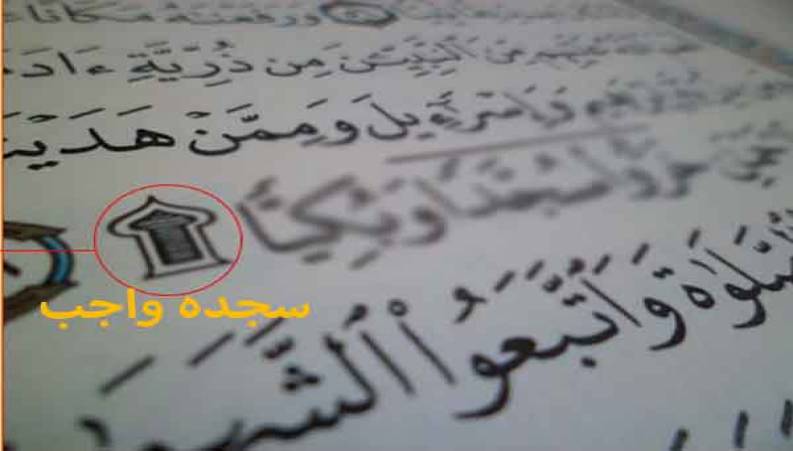 وَرَفَعْنَٰهُ مَكَانًا
مِّنَ ٱلنَّبِيِّـۧنَ مِن ذُرِّيَّةِ ءَادَ
وَإِسْرَٰٓءِيلَ وَمِمَّنْ هَدَيْنَ
خَرُّوا۟ سُجَّدًا وَبُكِيًّا
سجده واجب
ٱلصَّلَوٰةَ وَٱتَّبَعُوا۟ ٱلشَّهَوَ